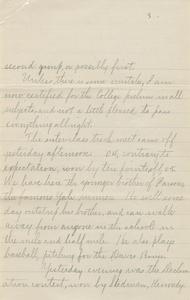 3
second group, or possibly first.
Unless there is some mistake, I am
now certified for the College prelims in all
subjects, and not a little pleased to pass
everything all right.
The interclass track meet came off
yesterday afternoon. Of, contrary to
expectation, won by ten points off us.
We have here the younger brother of
the famous Yale runner. He will some
day outstrip his brother, and can walk
away from anyone in the school in
the mile and half mile. He also plays
baseball, pitching for the
Yesterday evening was the Declam-
ation contest, won by